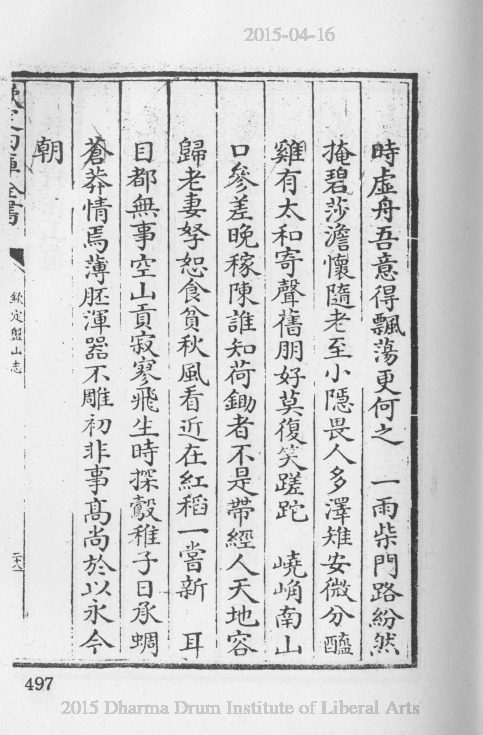 2015-04-16
時虛舟吾意得飄蕩更何之　一雨柴門路紛然
掩碧莎澹懷隨老至小隱畏人多澤雉安微分醯
雞有太和寄聲舊朋好莫復笑蹉跎　嶢崅南山
口參差晚稼陳誰知荷鋤者不是帶經人天地容
歸老妻孥恕食貧秋風看近在紅稻一嘗新　耳
目都無事空山貢寂寥飛生時探鷇稚子日承蜩
蒼莽情焉薄胚渾器不雕初非事髙尚於以永今
朝
欽定四庫全書
欽定盤山志
497
2015 Dharma Drum Institute of Liberal Arts